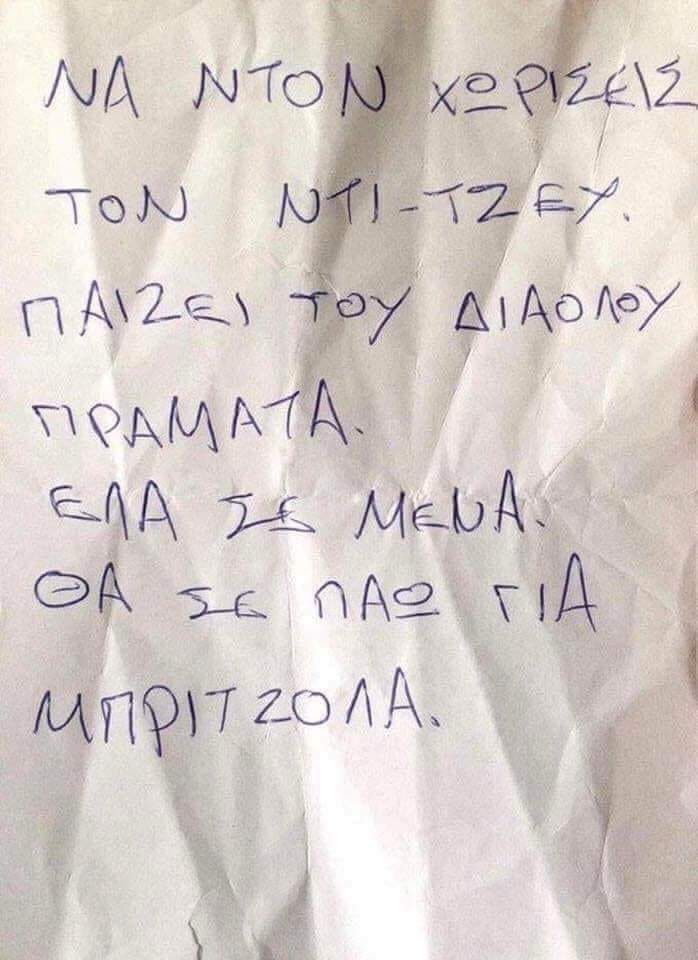 ΝΑ ΝΤΟΝ ΧΩΡΙΣΕΙΣ
ΤΟΝ ΝΤΙ-ΤΖΕΥ.
ΠΑΙΖΕΙ ΤΟΥ ΔΙΑΟΛΟΥ
ΠΡΑΜΑΤΑ.
ΕΛΑ ΣΕ ΜΕΝΑ.
ΘΑ ΣΕ ΠΑΩ ΓΙΑ
ΜΠΡΙΤΖΟΛΑ.